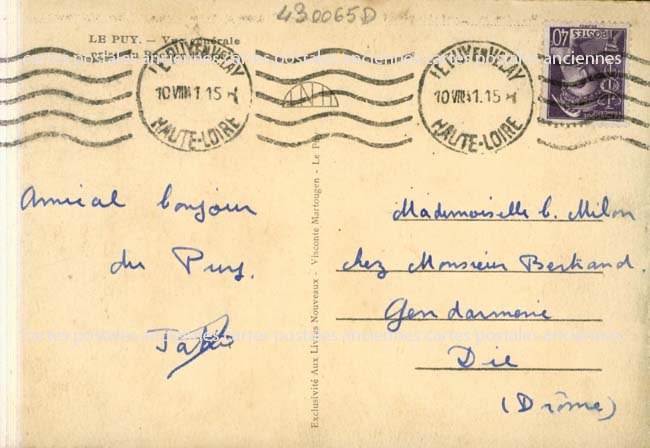 430065D
LE PUY. — Vue générale
LE PUY EN VELAY
10 VIII 41. 15 H
HAUTE-LOIRE
LE PUY EN VELAY
10 VIII 41. 15 H
HAUTE-LOIRE
40
POSTES
cartes postales anciennes cartes postales anciennes cartes postales anciennes
Amical bonjour
du Puy.
Exclusivité Aux Livres Nouveaux - Visconte Martougen - Le Puy
Mademoiselle C. Milon
chez Monsieur Bertrand.
Gendarmerie
Die
(Drôme)
cartes postales anciennes cartes postales anciennes cartes postales anciennes